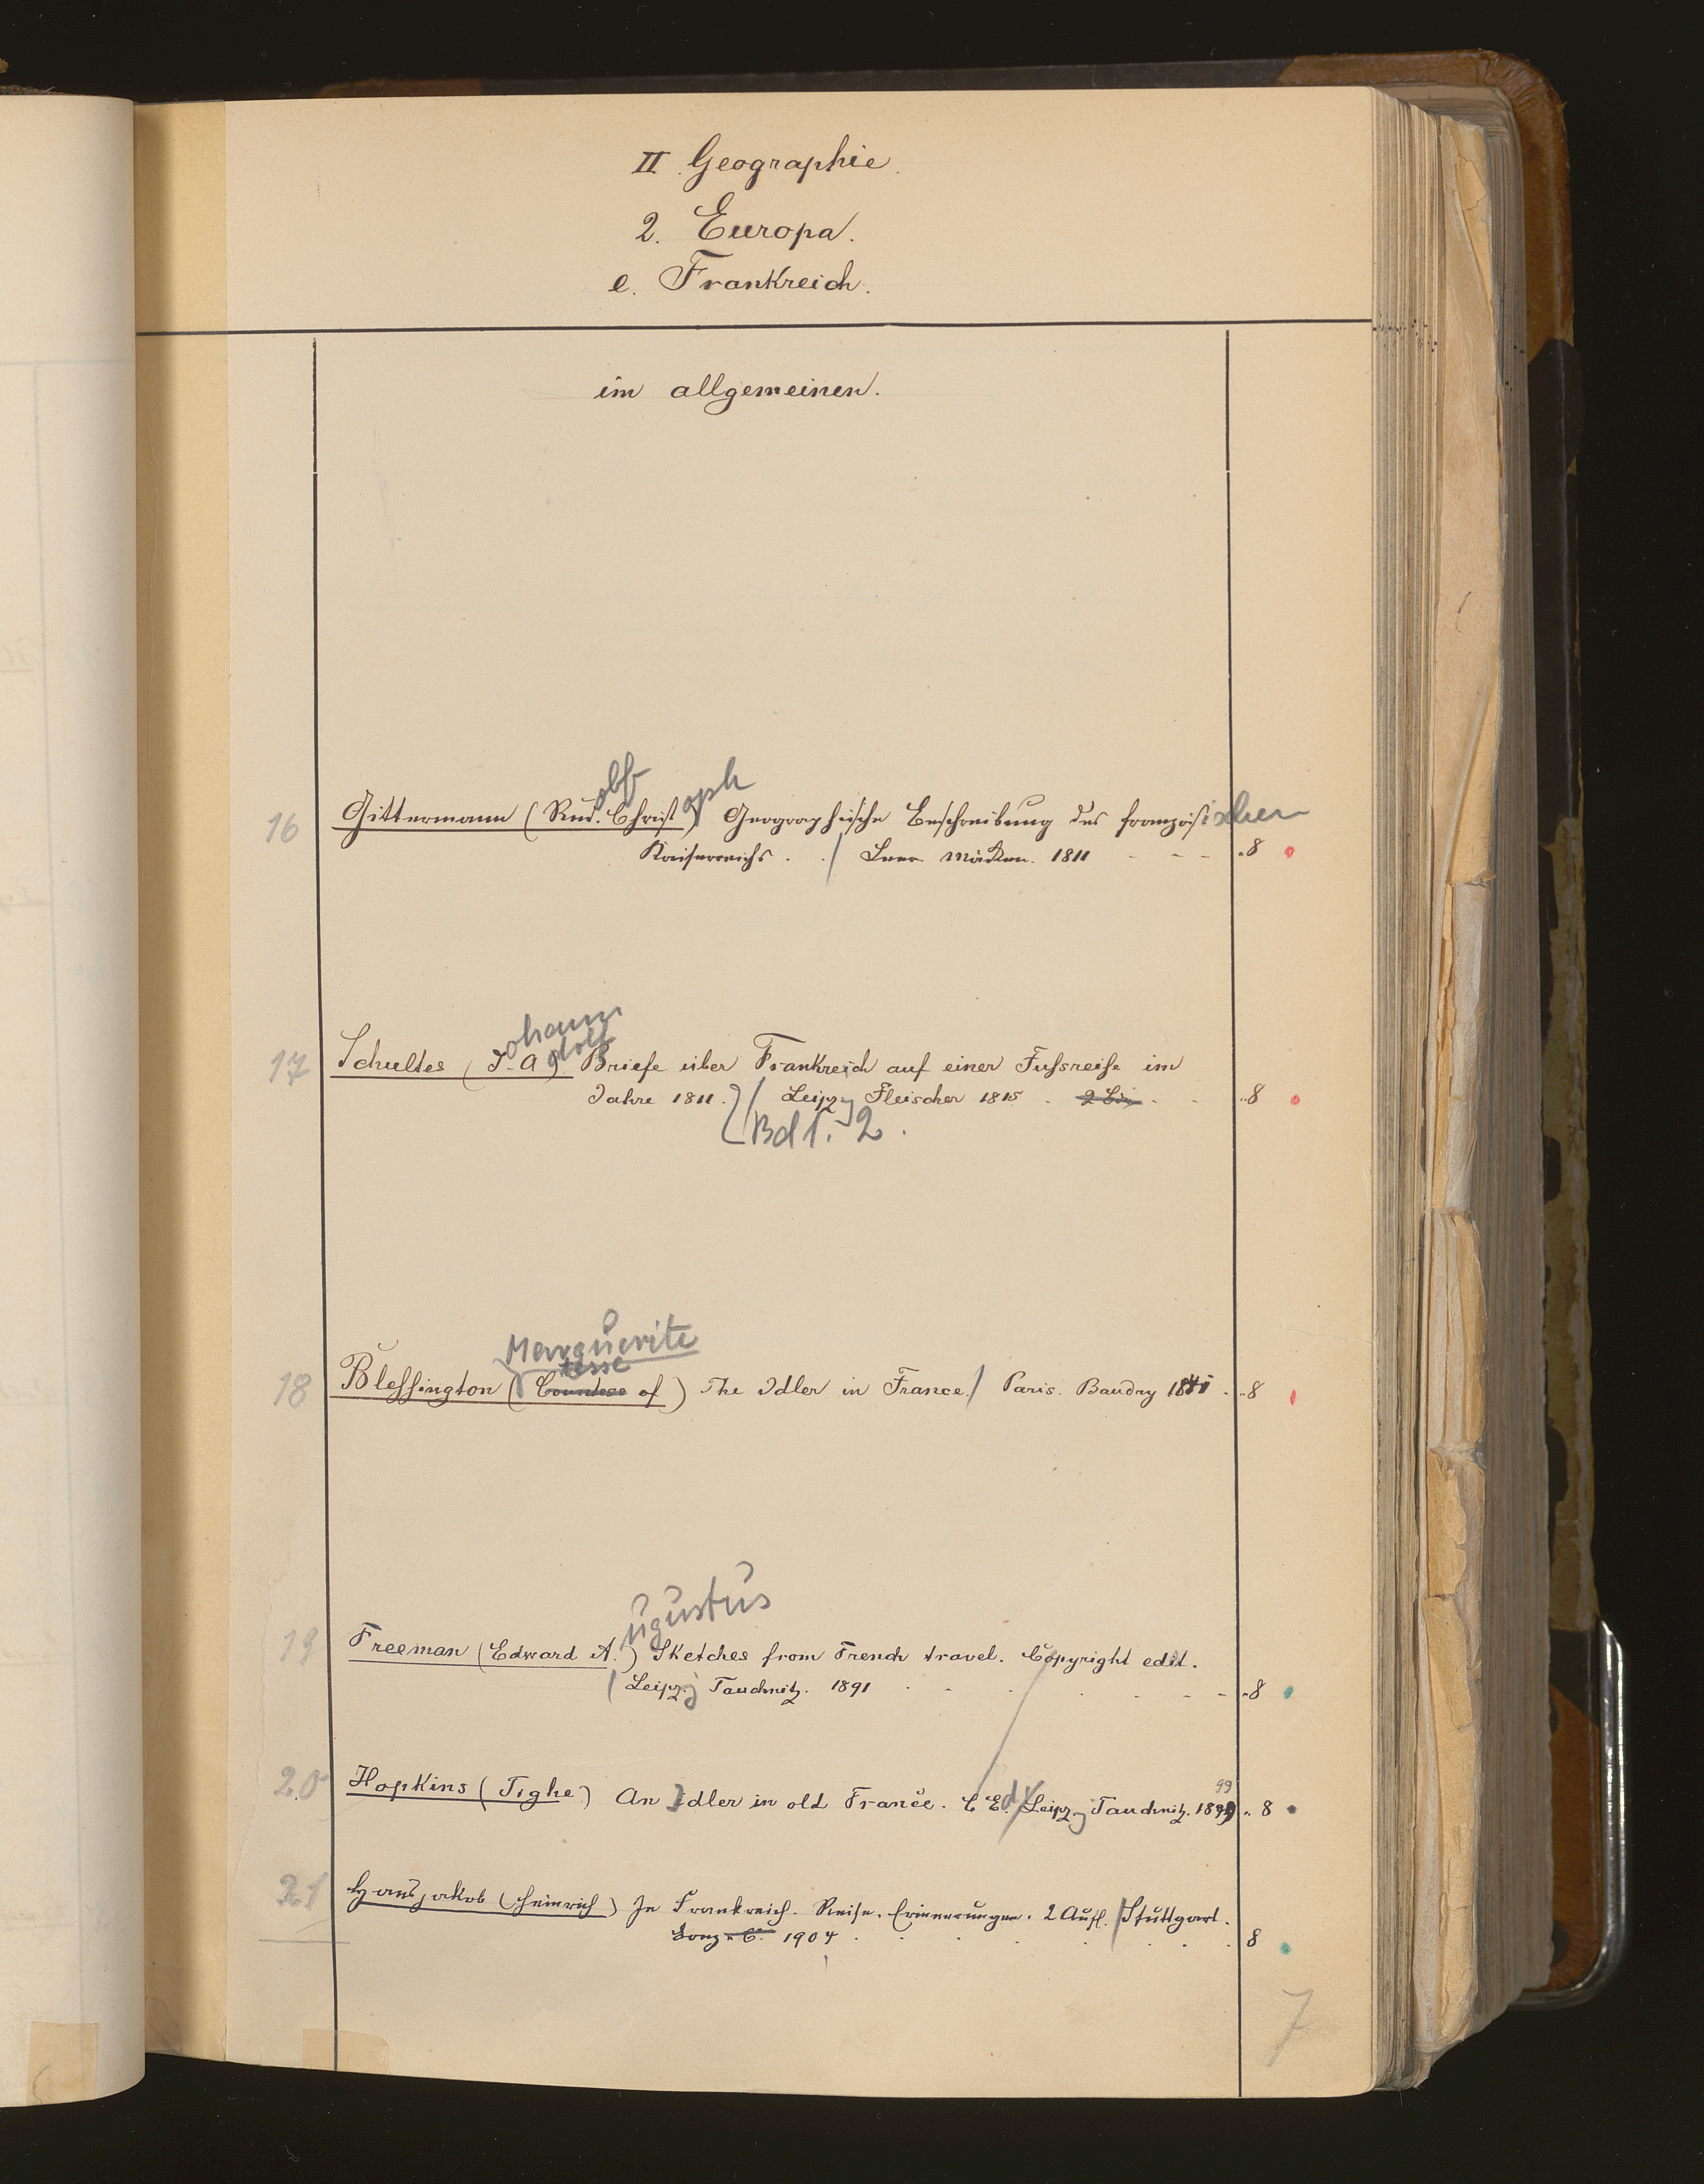 II. Geographie.
2. Europa.
e. Frankreich.
im allgemeinen.
olf oph
16 Gittermann (Rud. Christ) Geographische Beschreibung des französischen
Kaiserreichs . . / Leer Mäcken. 1811 - - - „8
ohann
dolf
17 Schultes (J. A.) Briefe über Frankreich auf einer Fussreise im
Jahre 1811. / Leipzig Fleischer 1815 . 2 Bde . . „8
Bd 1. 2.
Marguerite
tesse
18 Blessington (Countess of) The Idler in France. / Paris. Baudry 1841 . „8
ugustus
19 Freeman (Edward A.) Sketches from French travel. Copyright edit.
/ Leipzig Tauchnitz. 1891 . - . . . - - „8
99
20 Hopkins (Tighe) An Idler in old France. C Ed / Leipzig Tauchnitz. 1899 „ 8
21 Hansjakob (Heinrich) In Frankreich. Reise-Erinnerungen. 2 Aufl. / Stuttgart.
Bonz & C. 1904 . . . . . . . 8
7